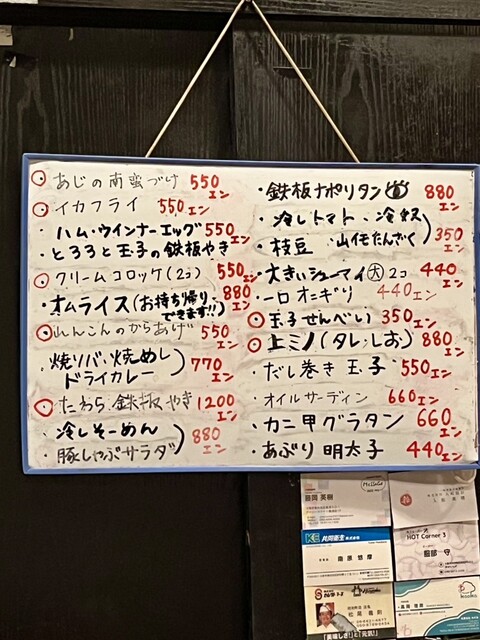 あじの南蛮づけ 550エン
イカフライ 550エン
・ハム・ウインナーエッグ 550エン
・とろろと玉子の鉄板やき
クリームコロッケ(2コ) 550エン
・オムライス(お持ち帰りできます!!) 880エン
れんこんのからあげ 550エン
・焼ソバ・焼めし
ドライカレー 770エン
たわら 鉄板やき 1200エン
・冷しそーめん
・豚しゃぶサラダ 880エン
・鉄板ナポリタン 880エン
・冷しトマト・冷奴
・枝豆 ・山イモたんざく 350エン
・大きいシューマイ(大)2コ 440エン
・一口オニギリ 440エン
玉子せんべい 350エン
上ミノ(タレ・しお) 880エン
・だし巻き玉子 550エン
・オイルサーディン 660エン
・カニ甲グラタン 660エン
・あぶり明太子 440エン
HOT Corner 3
共同衛生
南原 悠厚
松尾 義則